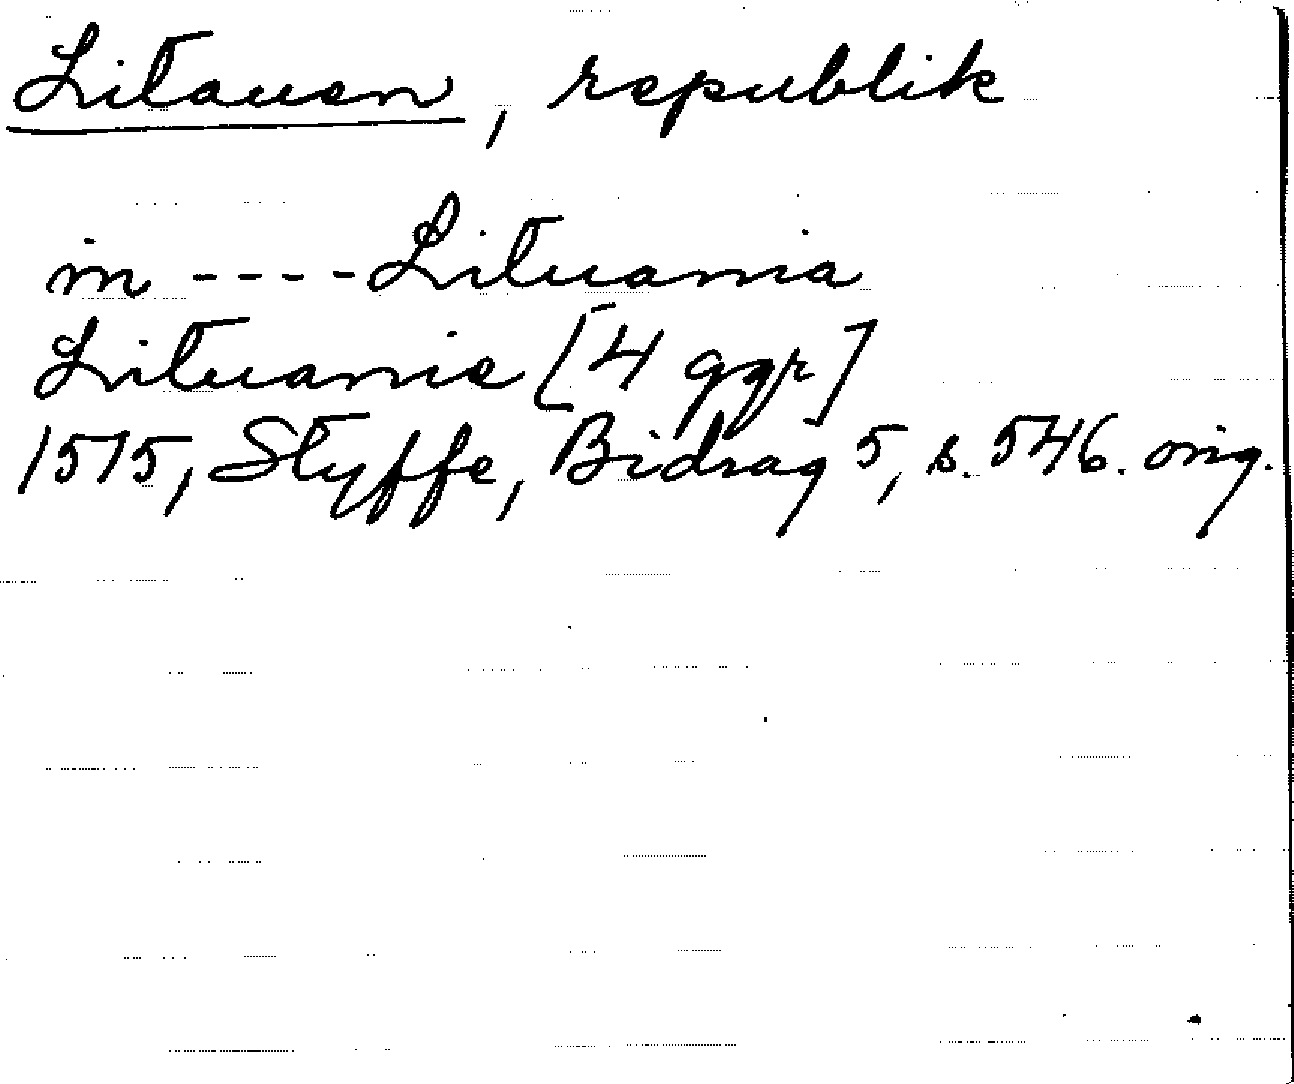 Litauen, republik
in ---- Lituania
Lituanie [4 ggr]
1515, Styffe, Bidrag 5, s. 546. orig.